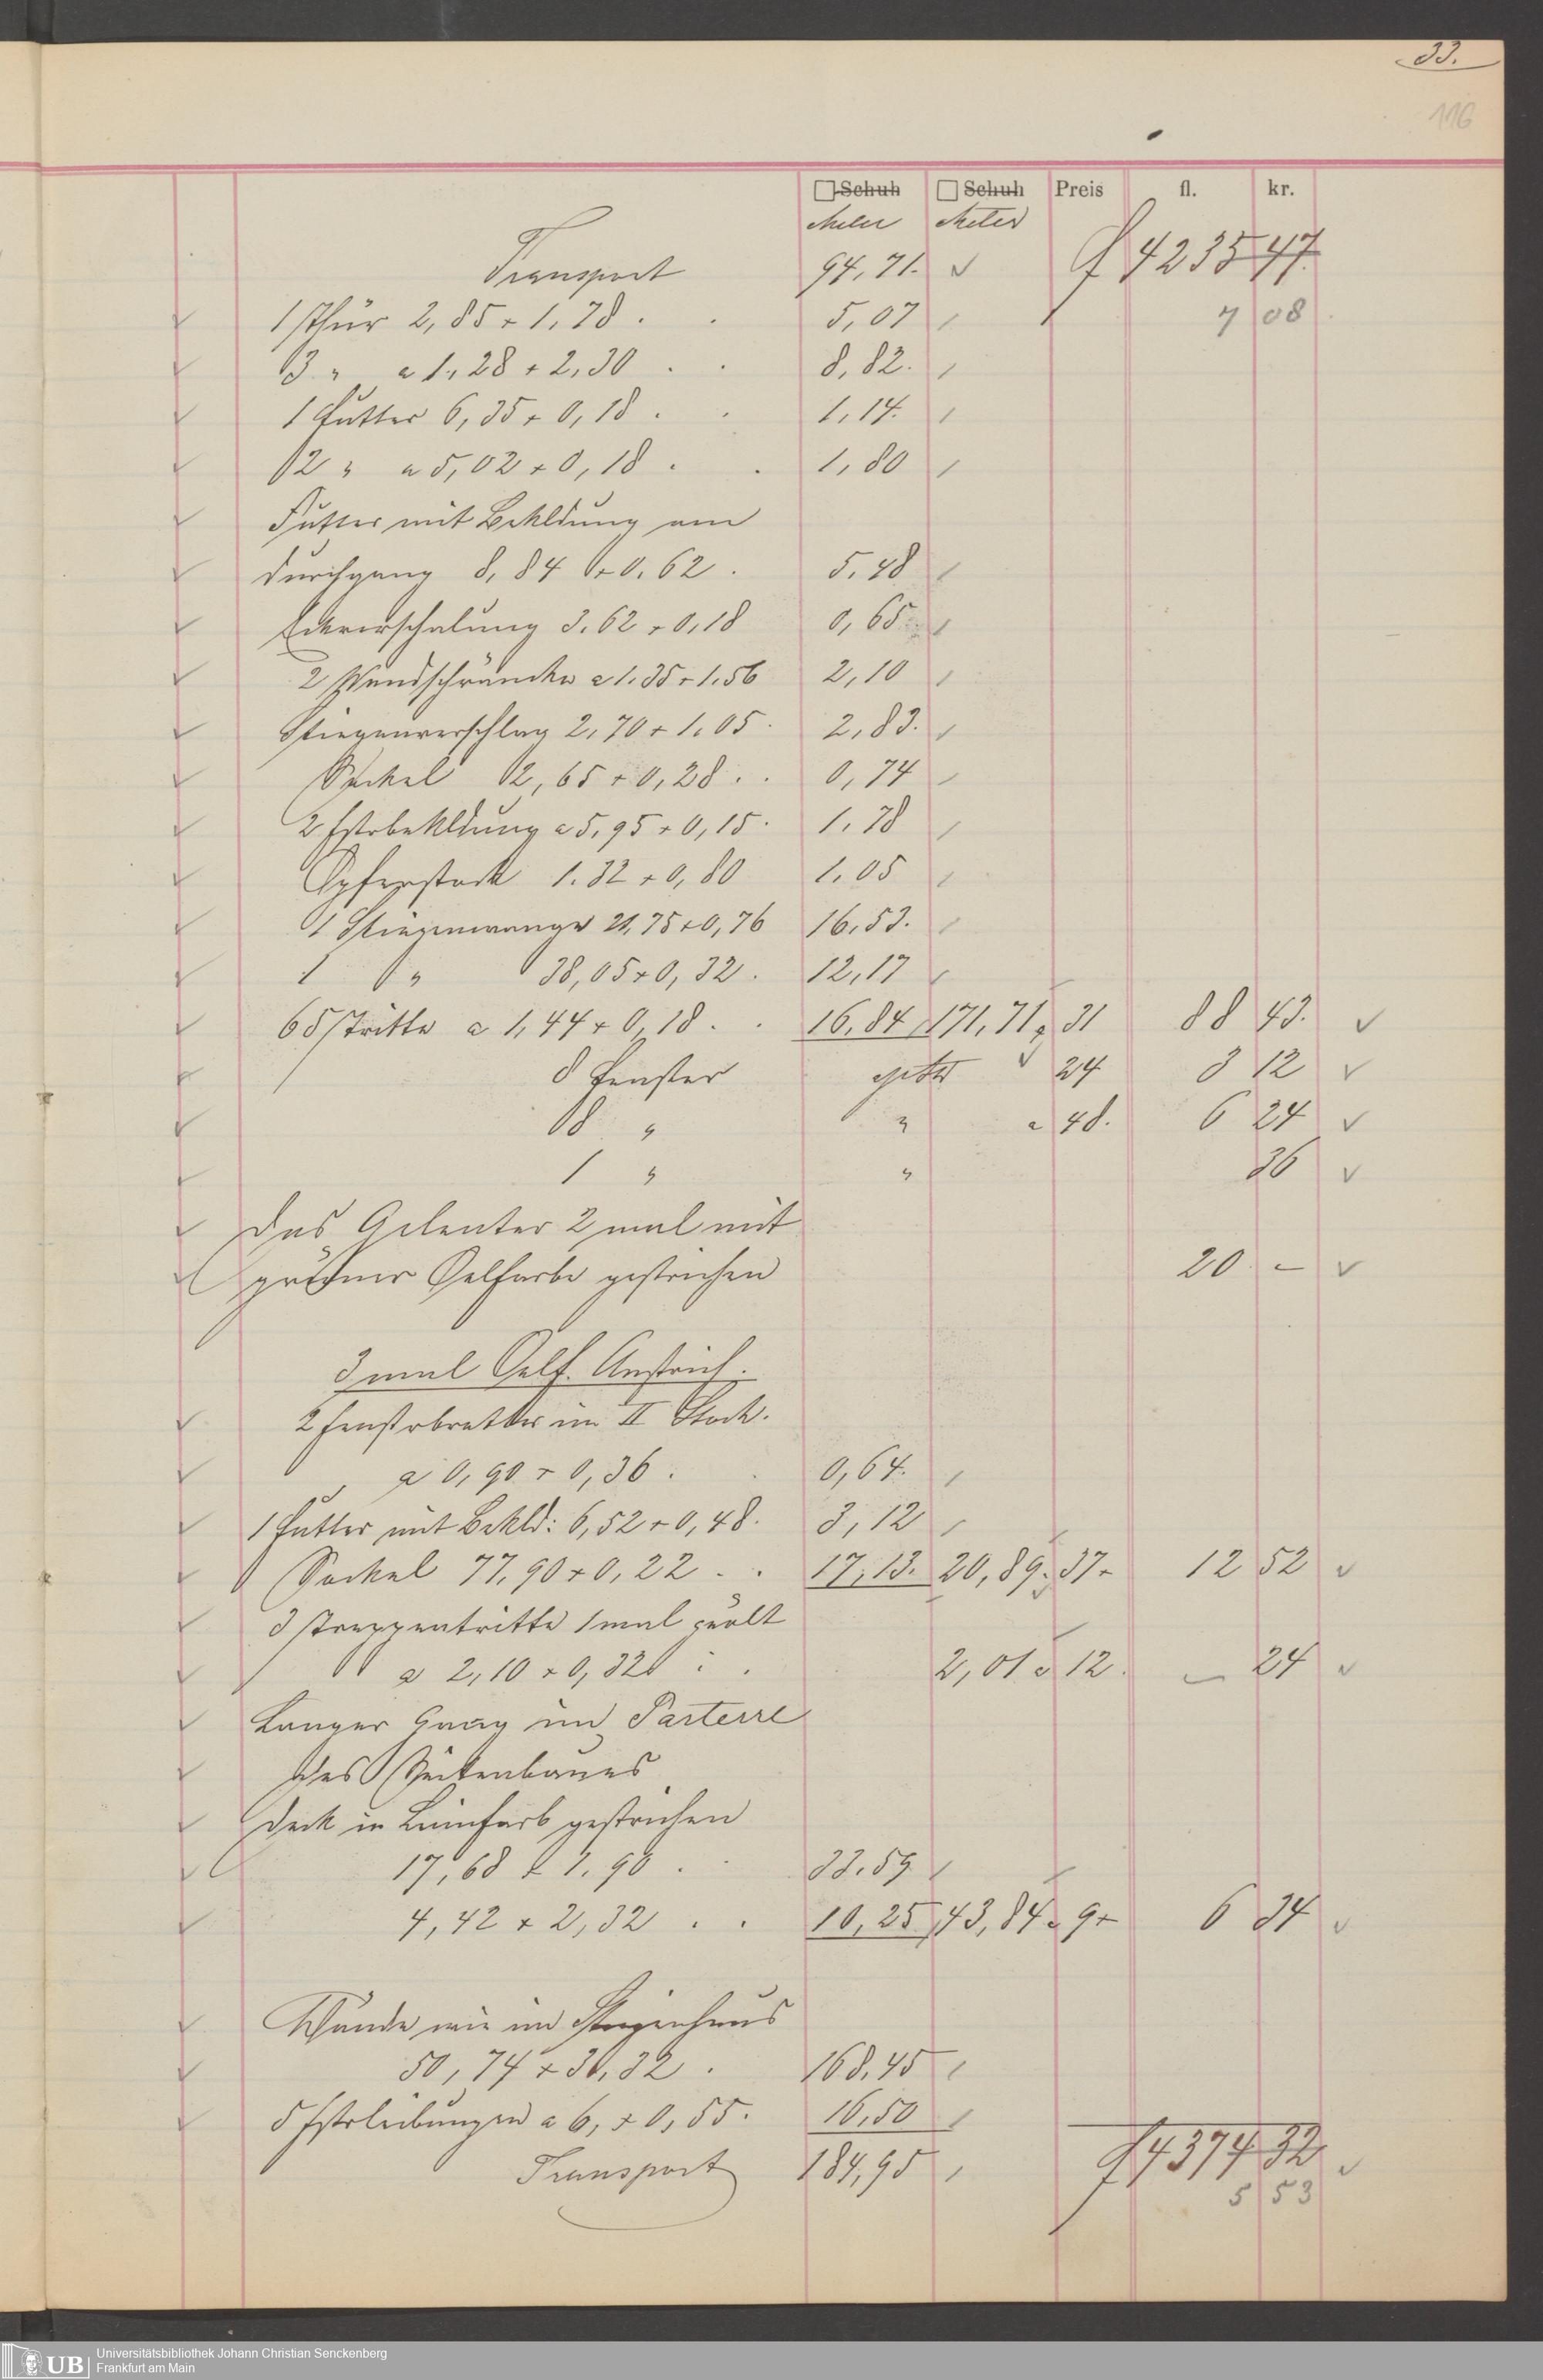 33.
116
□ Schuh □ Schuh Preis fl. kr.
Meter Meter
Transport 94,71. f 4235 47.
1 Thür 2,85 + 1,78 . . 5,07 7 08
3 " a 1,28 + 2,30 . . 8,82.
1 Futter 6,35 + 0,18 . . 1,14.
2 " a 5,02 + 0,18 . . 1,80
Futter mit Bekldung am
Durchgang 8,84 + 0,62 . 5,48
Eckverschalung 3,62 + 0,18 0,65
2 Wandschränke a 1,35 + 1,56 2,10
Stiegenverschlag 2,70 + 1,05 . 2,83.
Sockel 2,65 + 0,28 . . 0,74
2 Fstrbekldung a 5,95 + 0,15 . 1,78
Opferstock 1.32 + 0,80 1,05
1 Stiegenwange 21,75 + 0,76 16,53.
1 " 38,05 + 0,32 . 12,17
65 Tritte a 1,44 + 0,18 . . 16,84 171,71 a 31 88 43.
8 Fenster 24 3 12
8 " " a 48. 6 24
1 " " 36
Das Gelenter 2 mal mit
grüner Oelfarbe gestrichen 20 –
3 mal Oelf. Anstrich.
2 Fenstrbretter im II Stock.
a 0,90 + 0,36 . . 0,64.
1 Futter mit Bekld: 6,52 + 0,48. 3,12
Sockel 77,90 + 0,22 . . 17,13. 20,89. 37 12 52
3 Treppentritte 1 mal geölt
a 2,10 + 0,32 . . 2,01 a 12. – 24
Langer Gang im Parterre
des Seitenbaues
Deck in Leimfarb gestrichen
17,68 + 1,90 . . 33.59
4,42 + 2,32 . . 10,25 43,84 a 9 6 34
Wände wie im Stiegenhaus
50,74 + 3,32 . 168,45
5 Fstrleibungen a 6, + 0,55. 16,50
Transport 184,95 f 4374 32
5 53
UB Universitätsbibliothek Johann Christian Senckenberg
Frankfurt am Main